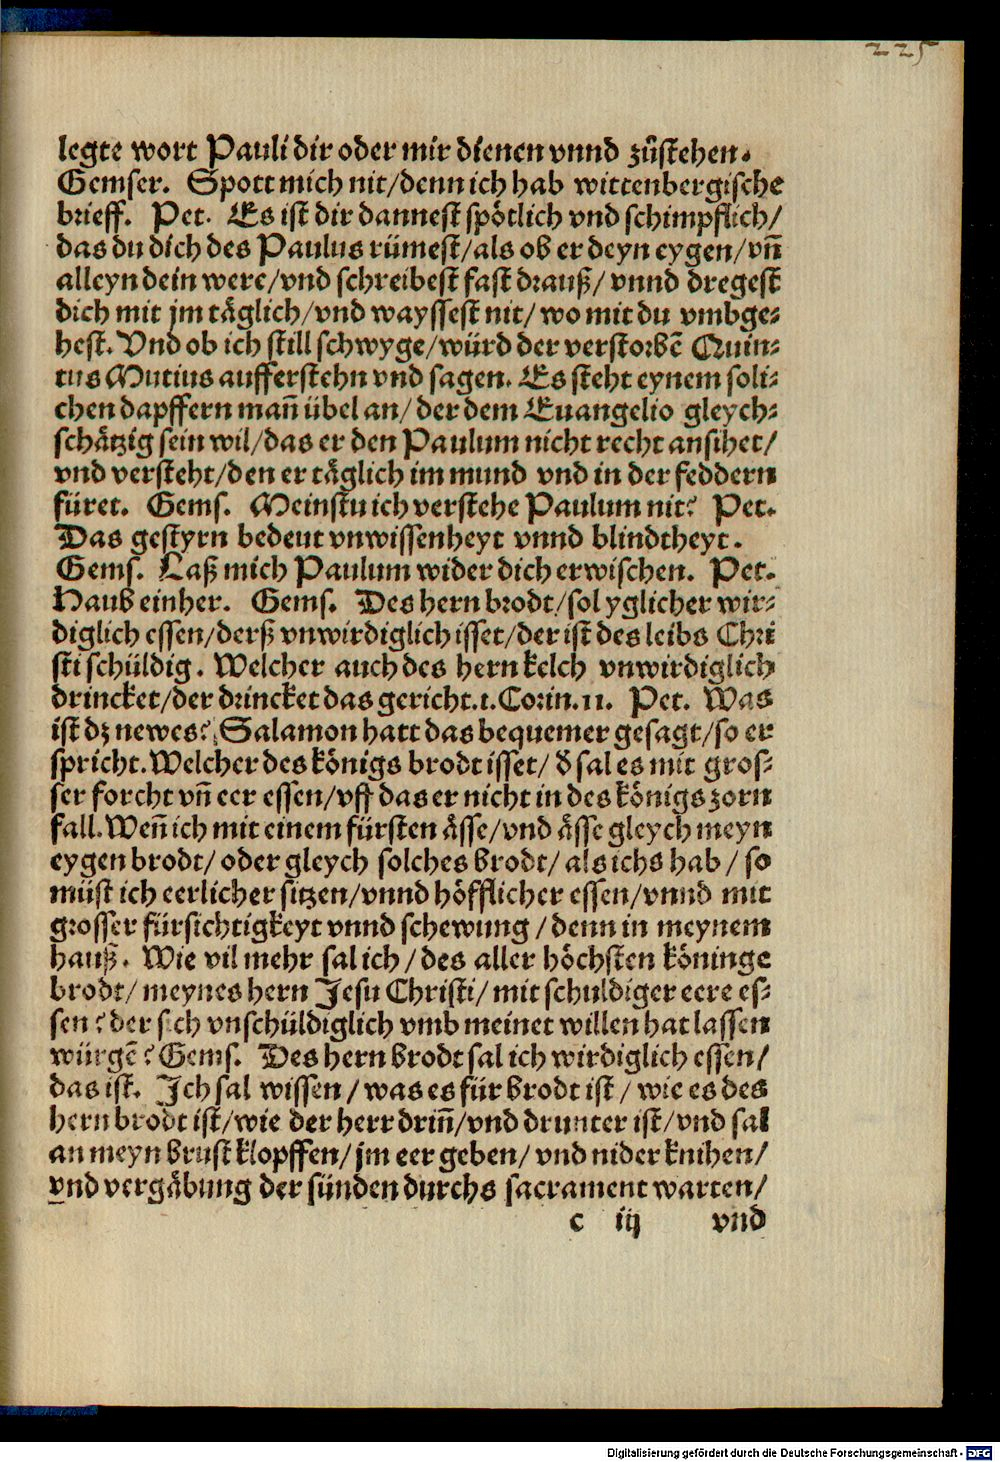 225
legte wort Pauli dir oder mir dienen vnnd zůstehen.
Gemser. Spott mich nit/denn ich hab wittenbergische
brieff. Pet. Es ist dir dannest spötlich vnd schimpflich/
das du dich des Paulus rümest/als ob er deyn eygen/vñ
alleyn dein were/vnd schreibest fast drauß/ vnnd dregest
dich mit jm täglich/vnd wayssest nit/ wo mit du vmbge⸗
hest. Vnd ob ich still schwyge/würd der verstorbẽ Quin⸗
tus Mutius aufferstehn vnd sagen. Es steht eynem soli⸗
chen dapffern mañ übel an/ der dem Euangelio gleych⸗
schätzig sein wil/das er den Paulum nicht recht ansihet/
vnd versteht/den er täglich im mund vnd in der feddern
füret. Gems. Meinstu ich verstehe Paulum nit? Pet.
Das gestyrn bedeut vnwissenheyt vnnd blindtheyt.
Gems. Laß mich Paulum wider dich erwischen. Pet.
Haub einher. Gems. Des hern brodt/sol yglicher wir⸗
diglich essen/derß vnwirdiglich isset/der ist des leibs Chri
sti schüldig. Welcher auch des hern kelch vnwirdiglich
drincket/der drincket das gericht.1.Corin.11. Pet. Was
ist dz newes? Salamon hatt das bequemer gesagt/so er
spricht. Welcher des königs brodt isset/ d̕ sal es mit gros⸗
ser forcht vñ eer essen/vff das er nicht in des königs zorn
fall. Weñ ich mit einem fürsten ässe/vnd ässe gleych meyn
eygen brodt/ oder gleych solches brodt/ als ichs hab / so
müst ich eerlicher sitzen/vnnd höfflicher essen/vnnd mit
grosser fürsichtigkeyt vnnd schewung / denn in meynem
hauß. Wie vil mehr sal ich / des aller höchsten köninge
brodt/ meynes hern Jesu Christi/ mit schuldiger eere es⸗
sen? der sich vnschüldiglich vmb meinet willen hat lassen
würgẽ? Gems. Des hern brodt sal ich wirdiglich essen/
das ist. Ich sal wissen / was es für brodt ist / wie es des
hern brodt ist/wie der herr driñ/vnd drunter ist/vnd sal
an meyn brust klopffen/ jm eer geben/ vnd nider knihen/
vnd vergäbung der sünden durchs sacrament warten/
c iij vnd
Digitalisierung gefördert durch die Deutsche Forschungsgemeinschaft - DFG